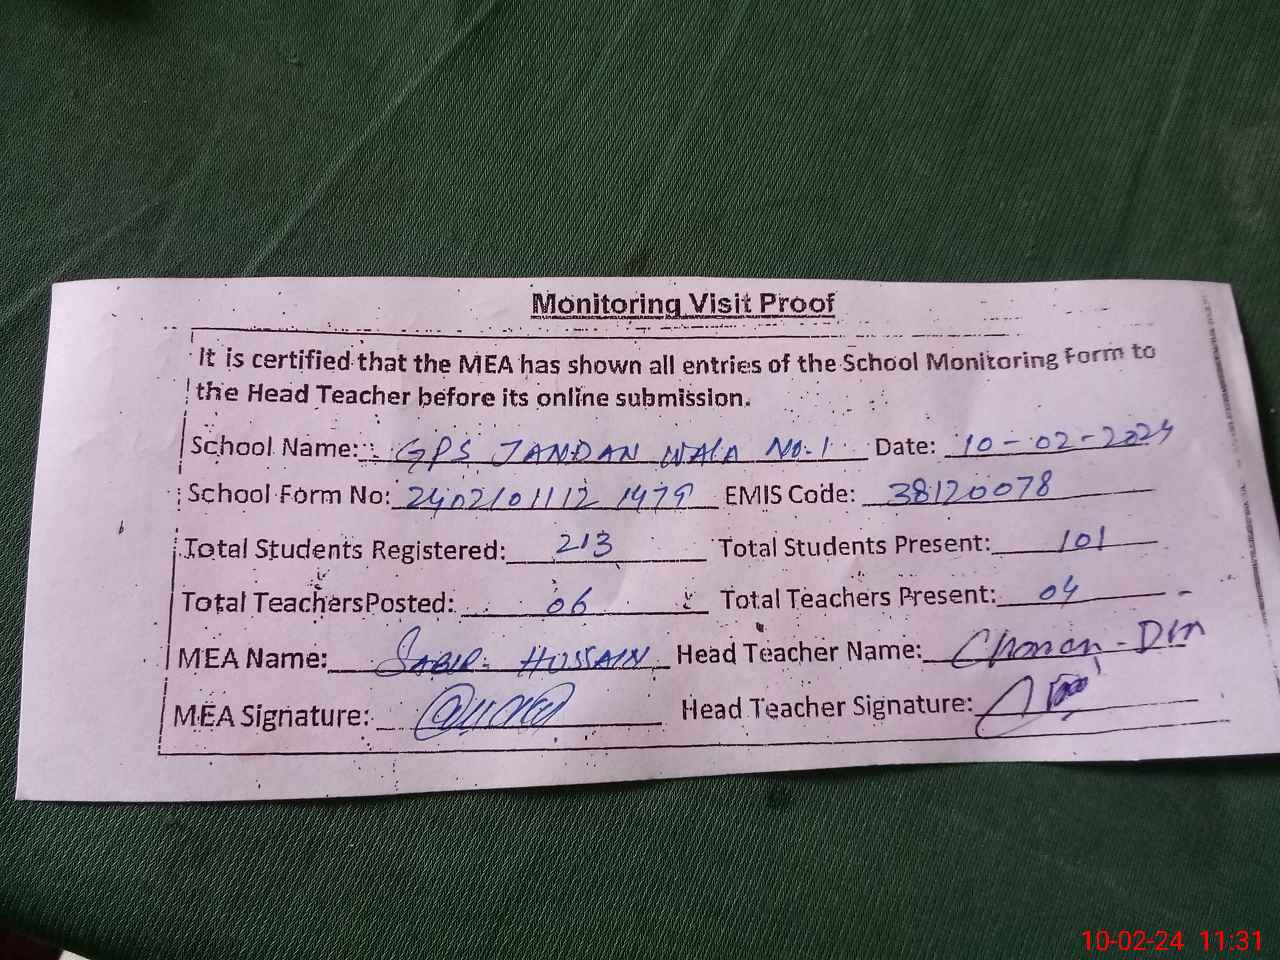 Monitoring Visit Proof
It is certified that the MEA has shown all entries of the School Monitoring Form to
the Head Teacher before its online submission.
School Name: GPS JANDAN WALA No.1 Date: 10-02-2024
School Form No: 2402101112 1479 EMIS Code: 38120078
Total Students Registered: 213 Total Students Present: 101
Total TeachersPosted: 06 Total Teachers Present: 04
MEA Name: SABIR HUSSAIN Head Teacher Name: Chanan-Din
MEA Signature: Head Teacher Signature:
10-02-24 11:31